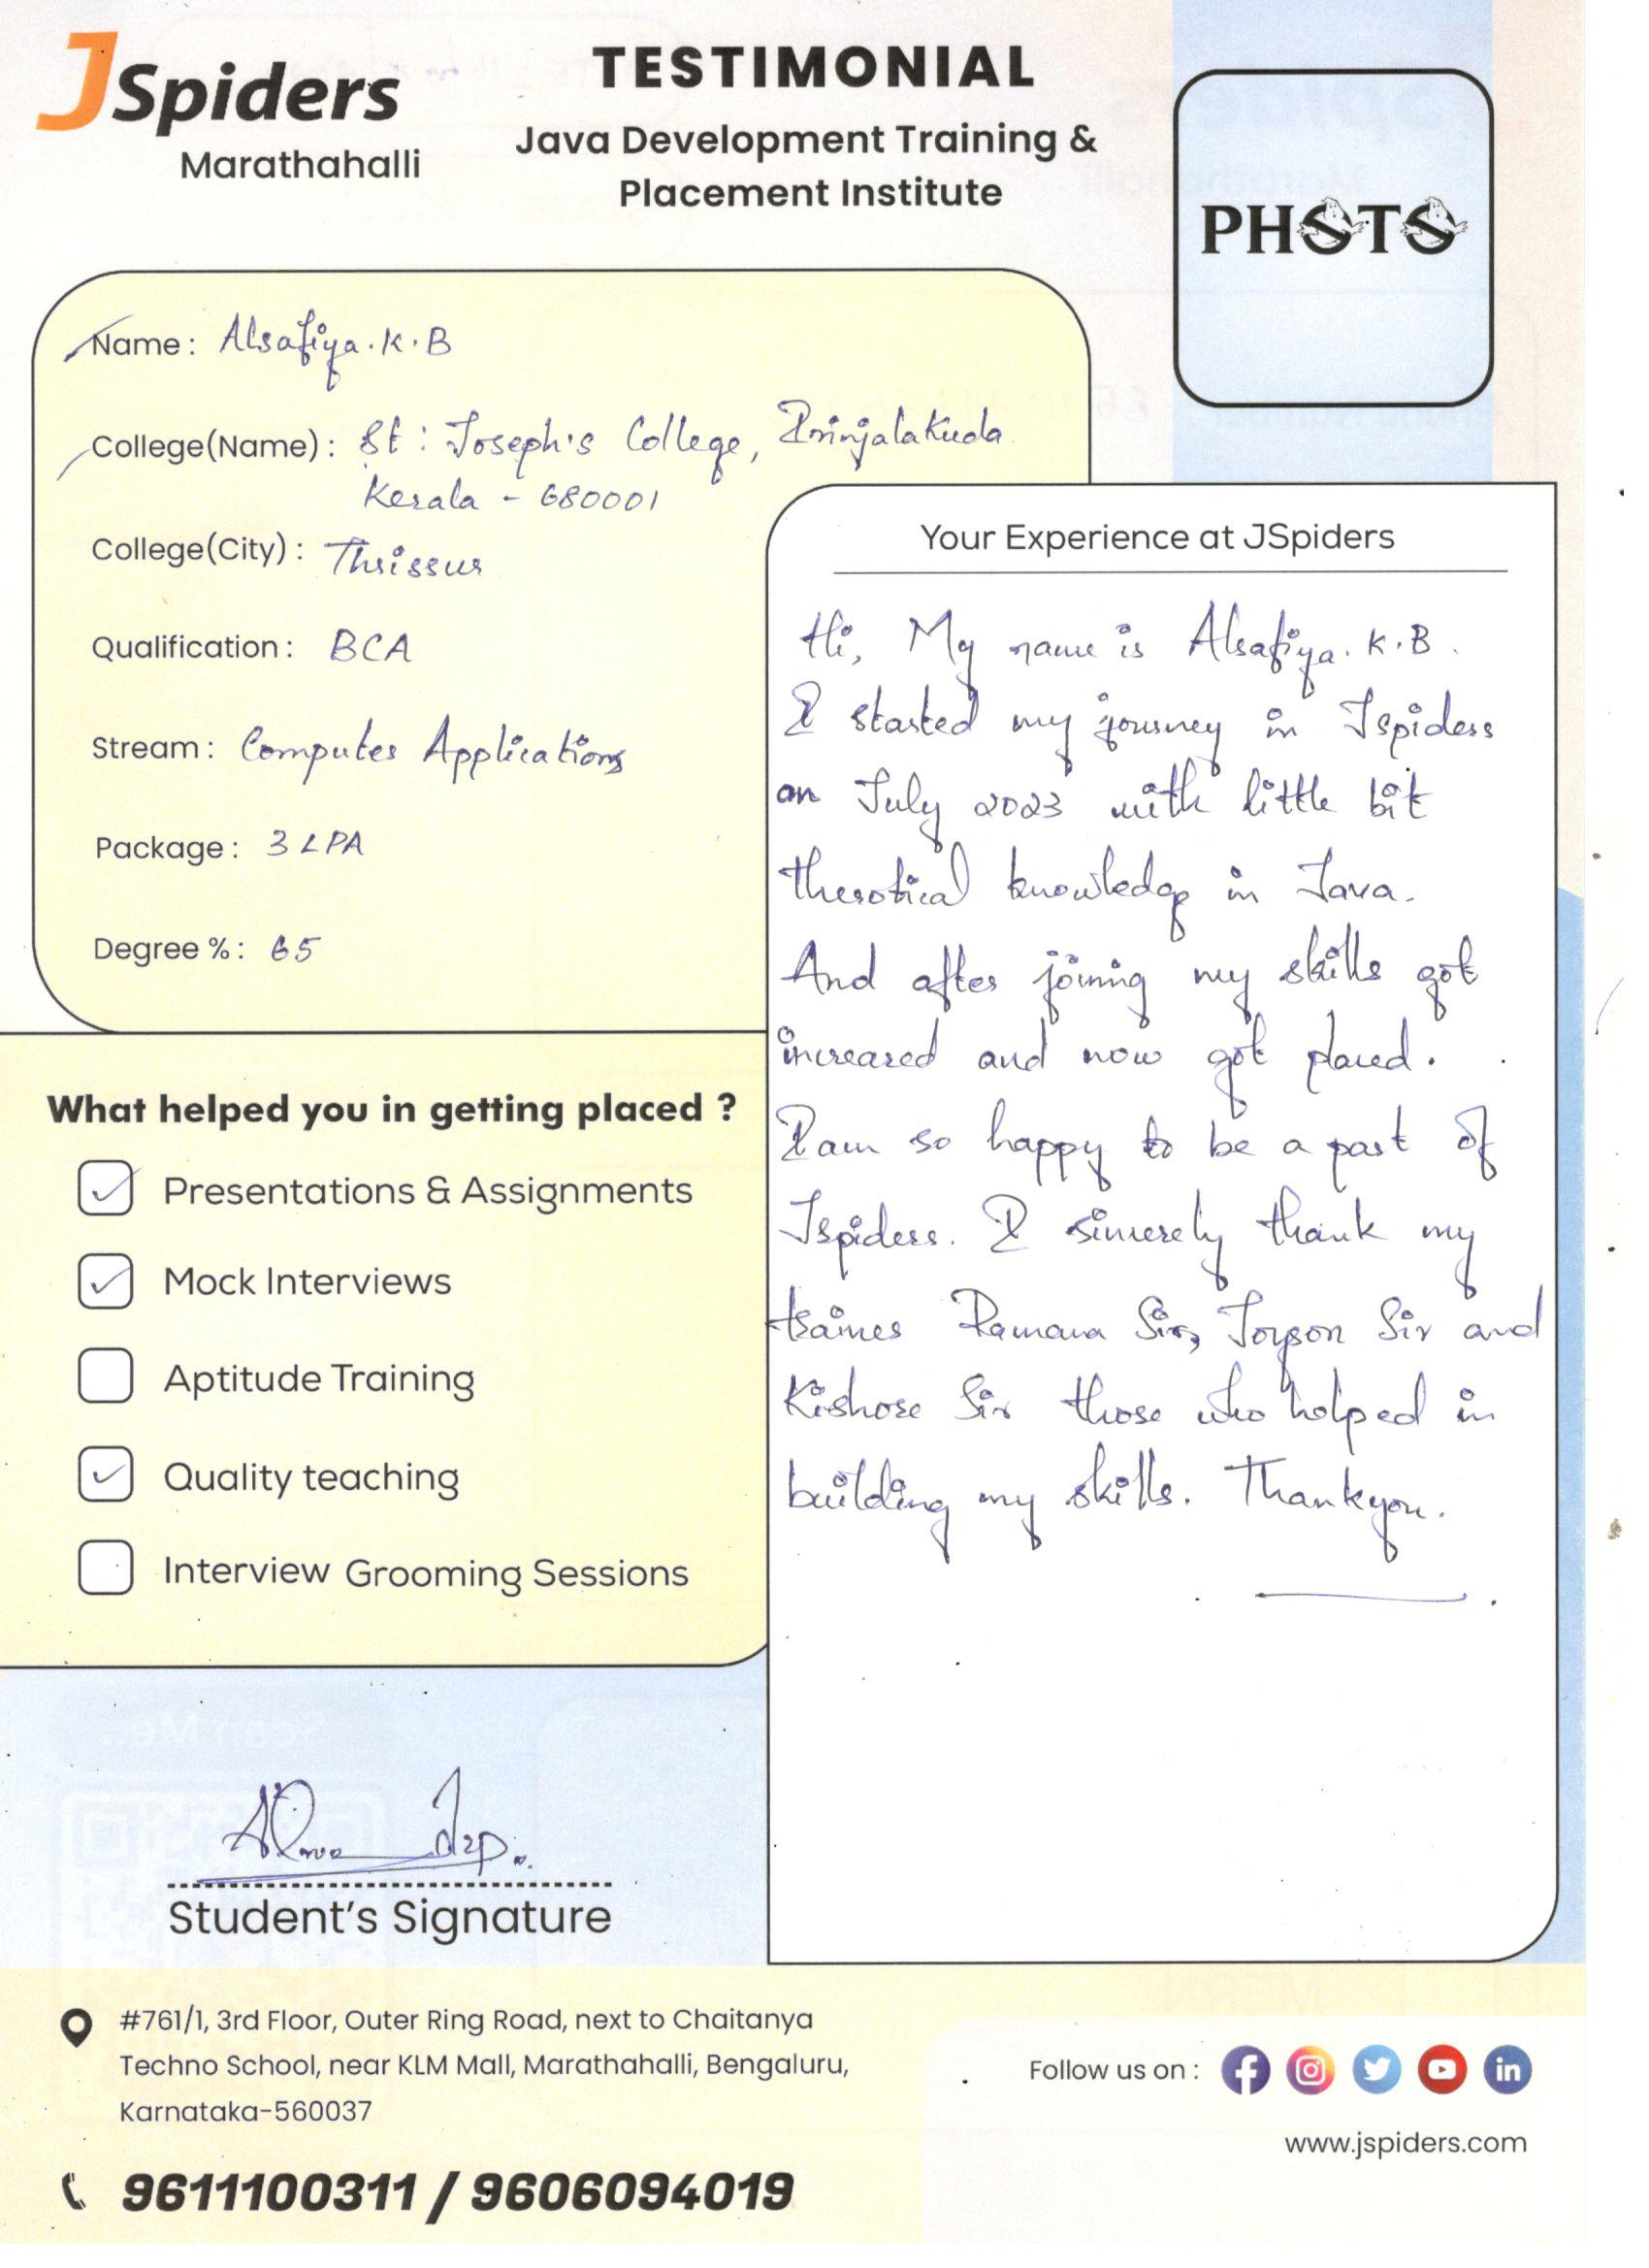 JSpiders
Marathahalli
TESTIMONIAL
Java Development Training &
Placement Institute
PHOTO
Name: Alsafiya.K.B
College(Name): St: Joseph's College, Irinjalakuda
Kerala - 680001
College(City): Thrissur
Qualification: BCA
Stream: Computer Applications
Package: 3 LPA
Degree %: 65
What helped you in getting placed ?
Presentations & Assignments
Mock Interviews
Aptitude Training
Quality teaching
Interview Grooming Sessions
Your Experience at JSpiders
Hi, My name is Alsafiya. K.B.
I started my journey in Jspiders
on July 2023 with little bit
therotical knowledge in Java.
And after joining my skills got
increased and now got placed.
I am so happy to be a part of
Jspiders. I sincerely thank my
trainer Ramana Sir, Joyson Sir and
Kishore Sir those who helped in
building my skills. Thankyou.
Student's Signature
#761/1, 3rd Floor, Outer Ring Road, next to Chaitanya
Techno School, near KLM Mall, Marathahalli, Bengaluru,
Karnataka-560037
9611100311 / 9606094019
Follow us on :
www.jspiders.com